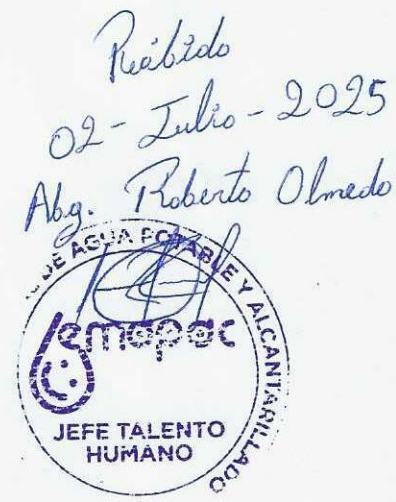 Recibido
02 - Julio - 2025
Abg. Roberto Olmedo
DE AGUA POTABLE Y ALCANTARILLADO
emapac
JEFE TALENTO
HUMANO